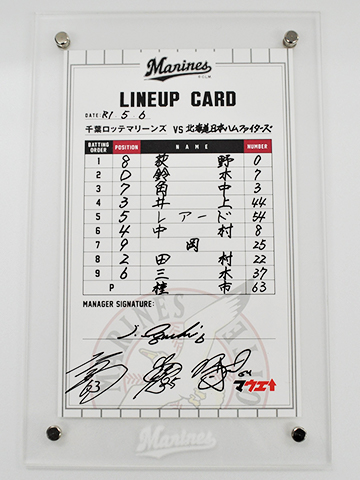 Marines
LINEUP CARD
DATE: R1 5 6
千葉ロッテマリーンズ VS 北海道日本ハムファイターズ
BATTING ORDER POSITION NAME NUMBER
1 8 荻野 0
2 D 鈴木 7
3 7 角中 3
4 3 井上 44
5 5 レアード 54
6 4 中村 8
7 9 岡 25
8 2 田村 22
9 6 三木 37
P 種市 63
MANAGER SIGNATURE:
63 25 64
マウエ↑
Marines